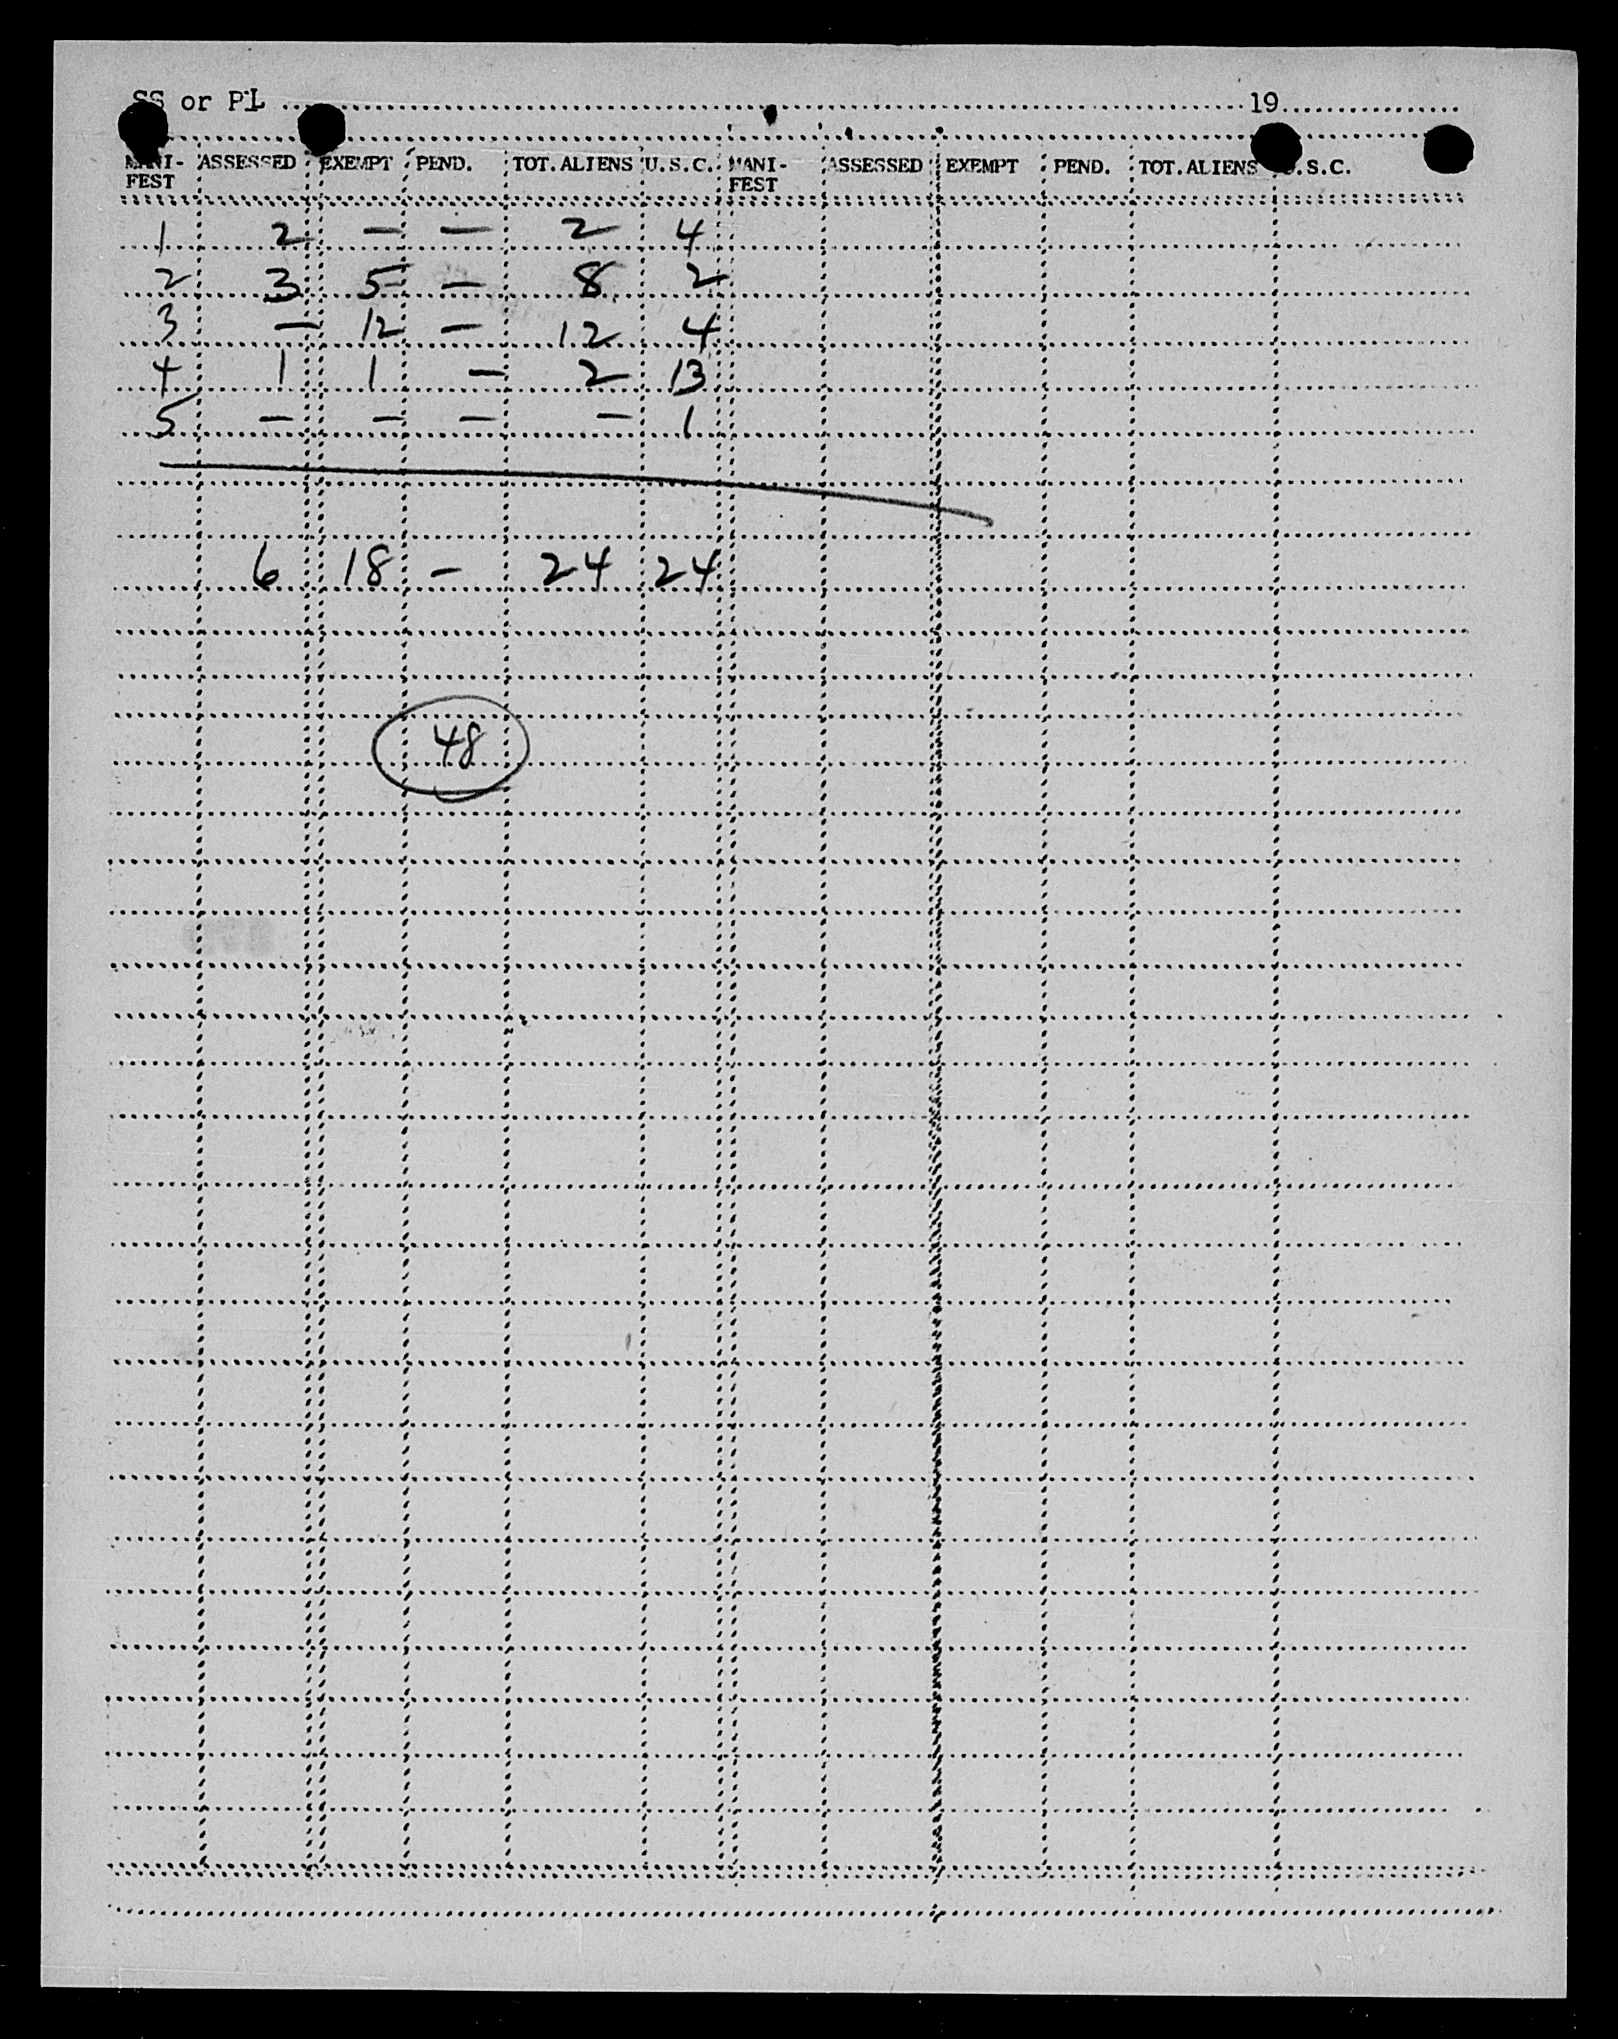 SS or PL 19
MANI- ASSESSED EXEMPT PEND. TOT. ALIENS U.S.C. MANI- ASSESSED EXEMPT PEND. TOT. ALIENS U.S.C.
FEST FEST
1 2 — — 2 4
2 3 5 — 8 2
3 — 12 — 12 4
4 1 1 — 2 13
5 — — — — 1
6 18 — 24 24
48